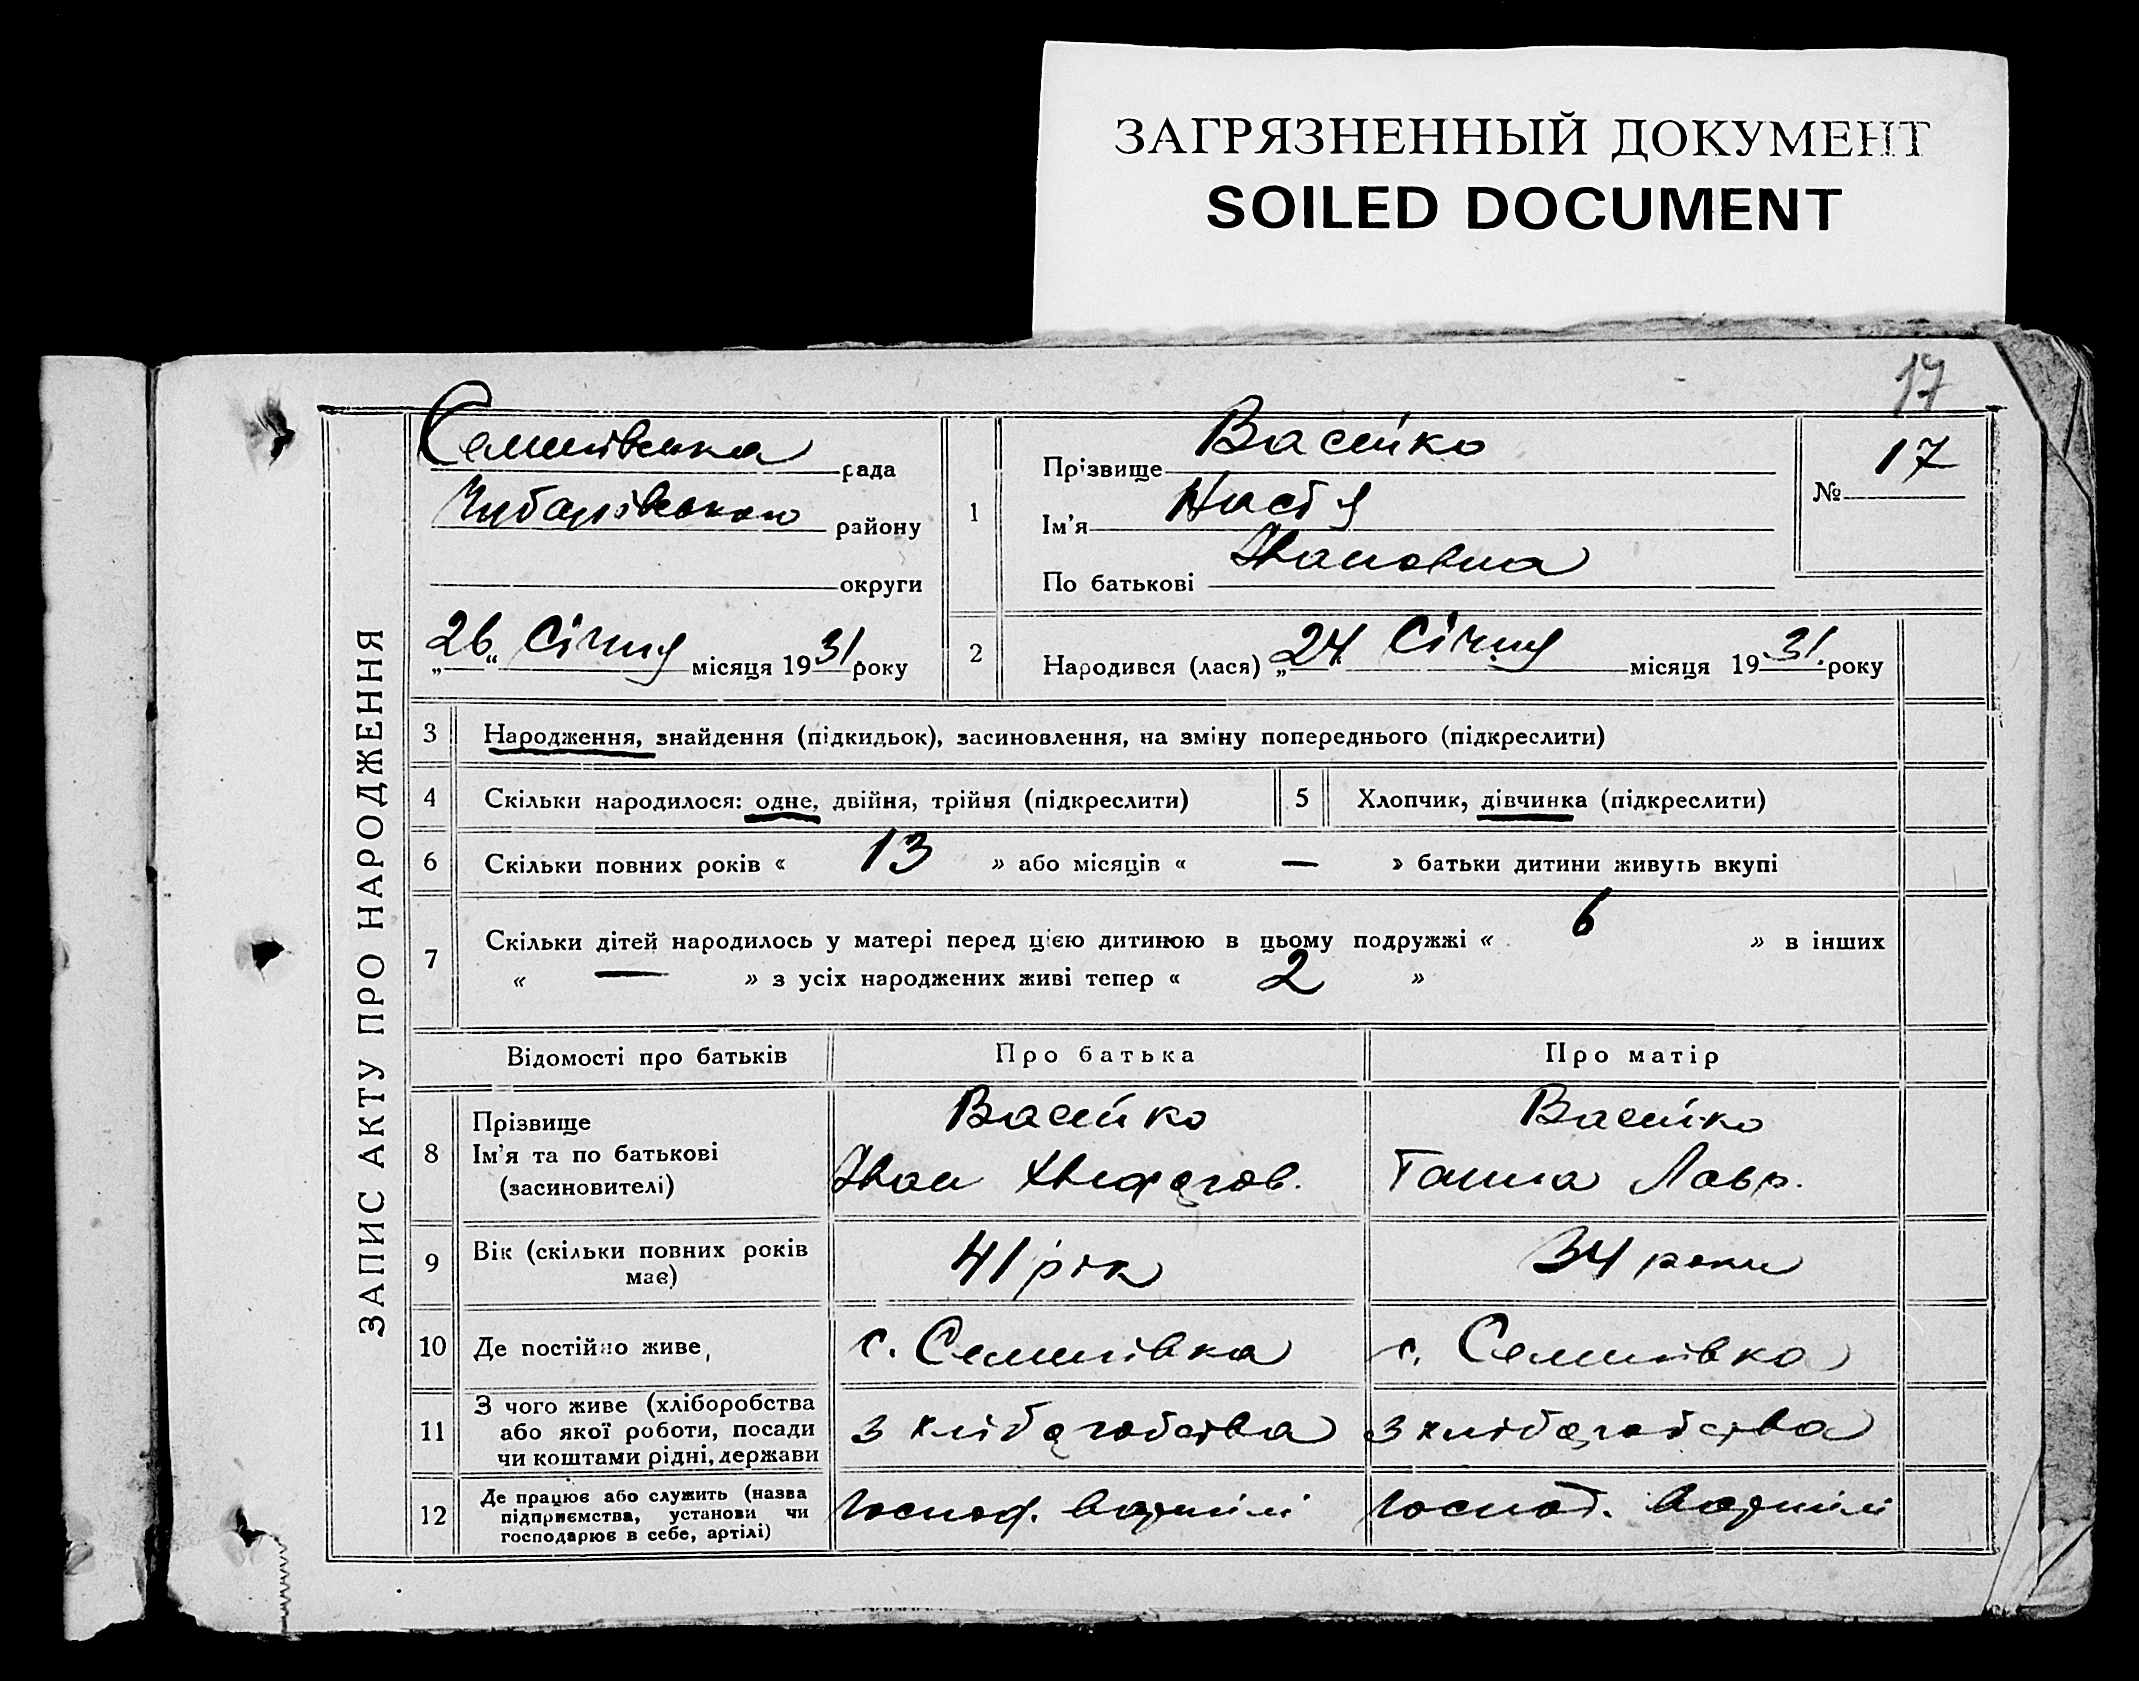 ЗАГРЯЗНЕННЫЙ ДОКУМЕНТ
SOILED DOCUMENT
17
ЗАПИС АКТУ ПРО НАРОДЖЕННЯ
Семенівська рада
Чубарівського району
округи
„26“ Січня місяця 1931 року
1
Прізвище Васейко
Ім'я Настя
По батькові Івановна
№ 17
2
Народився (лася) „24“ Січня місяця 1931. року
3 Народження, знайдення (підкидьок), засиновлення, на зміну попереднього (підкреслити)
4 Скільки народилося: одне, двійня, трійня (підкреслити)
5 Хлопчик, дівчинка (підкреслити)
6 Скільки повних років « 13 » або місяців « — » батьки дитини живуть вкупі
7 Скільки дітей народилось у матері перед цією дитиною в цьому подружжі « 6 » в інших
« — » з усіх народжених живі тепер « 2 »
Відомості про батьків
Про батька
Про матір
8 Прізвище
Ім'я та по батькові
(засиновителі)
Васейко
Іван
Васейко
Ганна Лавр.
9 Вік (скільки повних років
має)
41 рік
34 роки
10 Де постійно живе,
с. Семенівка
с. Семенівка
11 З чого живе (хліборобства
або якої роботи, посади
чи коштами рідні, держави
з хліборобства
з хліборобства
12 Де працює або служить (назва
підприємства, установи чи
господарює в себе, артілі)
господ. в артілі
господ. в артілі